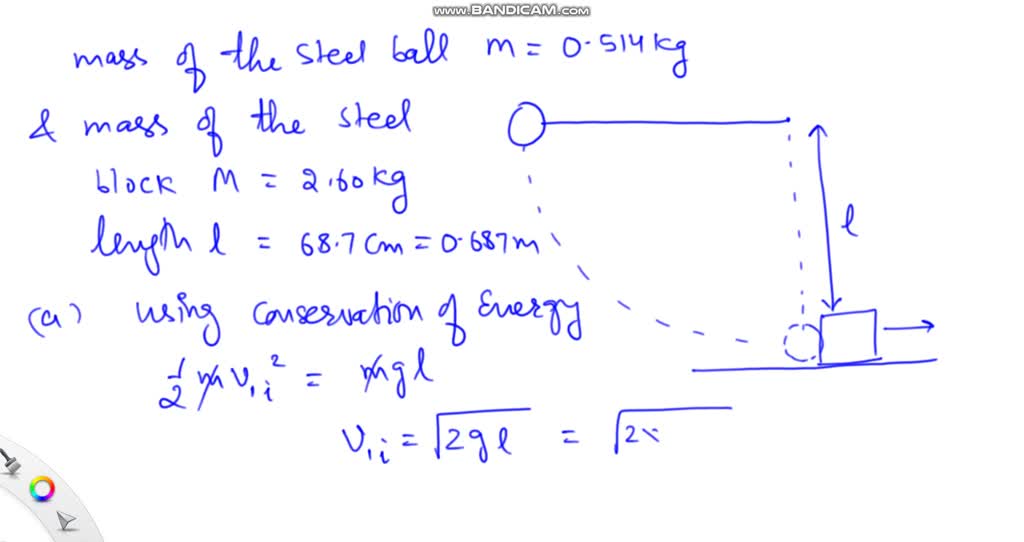 www.BANDICAM.com
mass of the steel ball m = 0.514 kg
& mass of the steel
block M = 2.60 kg
length l = 68.7 cm = 0.687 m
l
(a) using conservation of Energy
1/2 m v₁ᵢ² = m g l
v₁ᵢ = √2gl = √2×